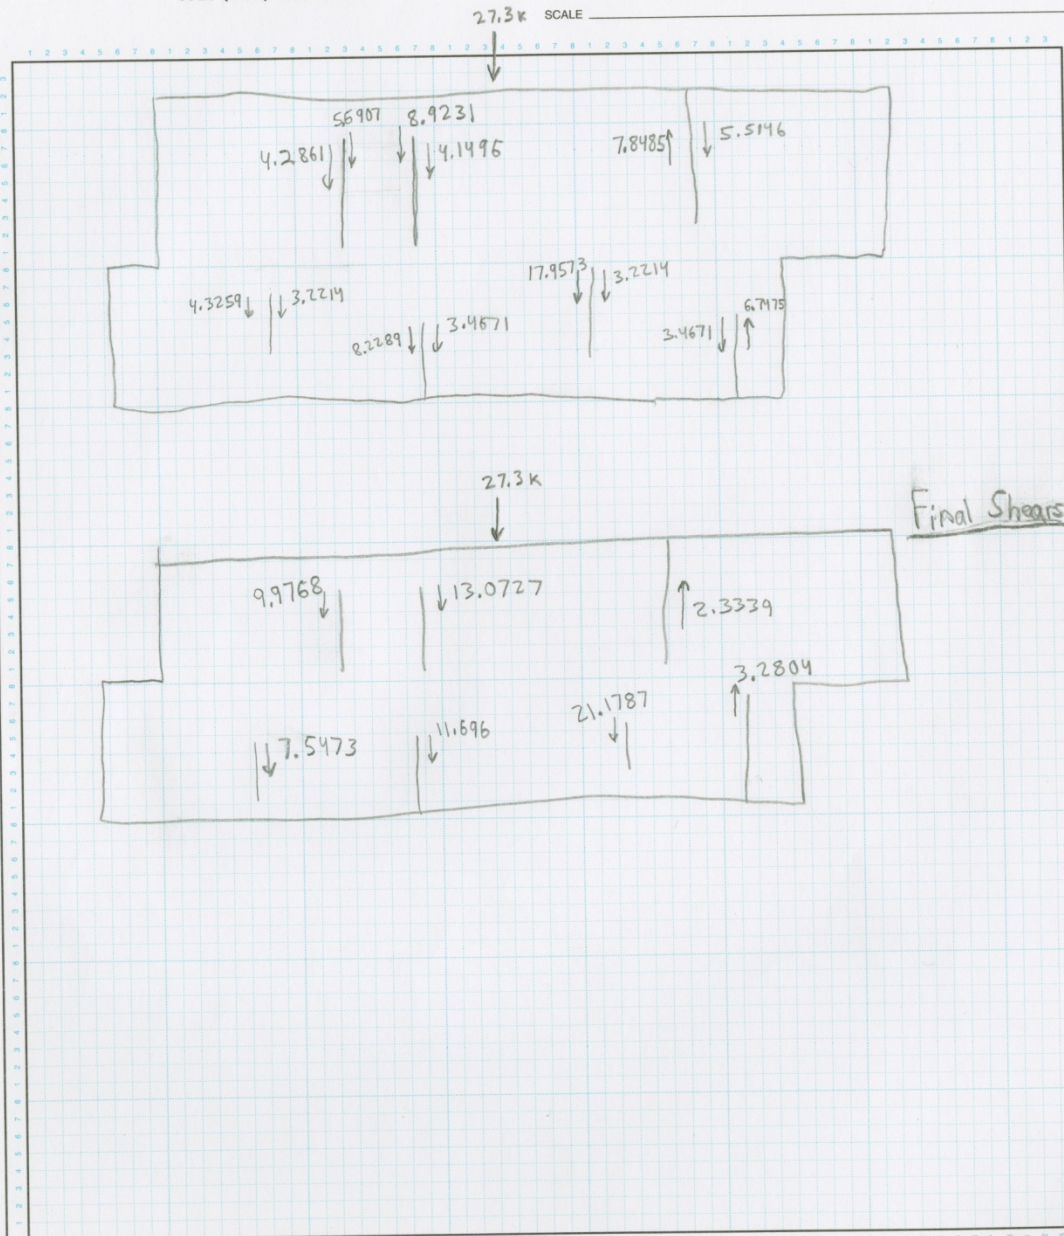 27.3 K SCALE
5.6907 8.9231
4.2861 4.1496 7.8485 5.5146
4.3259 3.2214 17.9573 3.2214
8.2289 3.4671 3.4671 6.7475
27.3 K
Final Shears
9.9768 13.0727 2.3339
3.2804
7.5473 11.696 21.1787